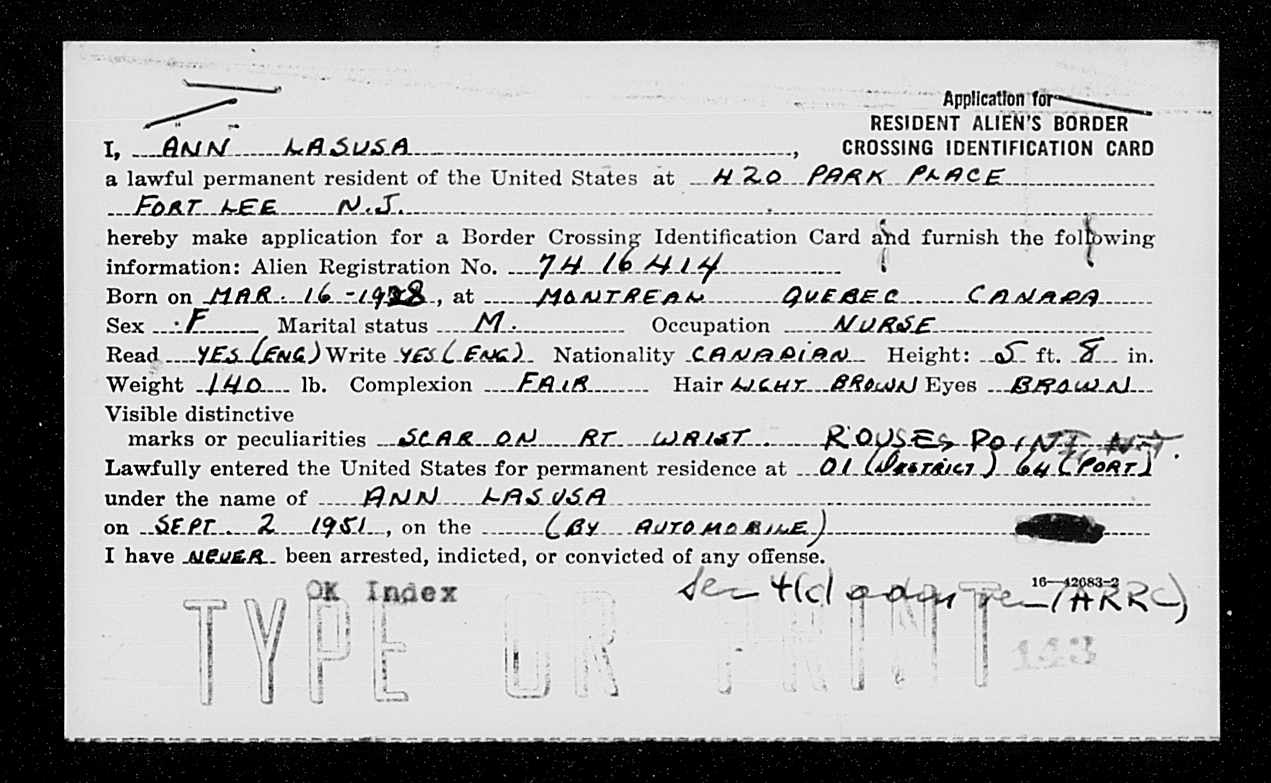 Application for
RESIDENT ALIEN'S BORDER
CROSSING IDENTIFICATION CARD
I, ANN LASUSA,
a lawful permanent resident of the United States at 420 PARK PLACE
FORT LEE N.J.
hereby make application for a Border Crossing Identification Card and furnish the following
information: Alien Registration No. 74 16 414
Born on MAR. 16 - 1928, at MONTREAL QUEBEC CANADA
Sex F Marital status M. Occupation NURSE
Read YES (ENG) Write YES (ENG) Nationality CANADIAN Height: 5 ft. 8 in.
Weight 140 lb. Complexion FAIR Hair LIGHT BROWN Eyes BROWN
Visible distinctive
marks or peculiarities SCAR ON RT WRIST. ROUSES POINT, N.Y.
Lawfully entered the United States for permanent residence at 01 (DISTRICT) 64 (PORT)
under the name of ANN LASUSA
on SEPT. 2 1951, on the (BY AUTOMOBILE)
I have NEVER been arrested, indicted, or convicted of any offense.
16—42083-2
OK Index
Sec 4(c) (ARRC)
TYPE OR PRINT
143